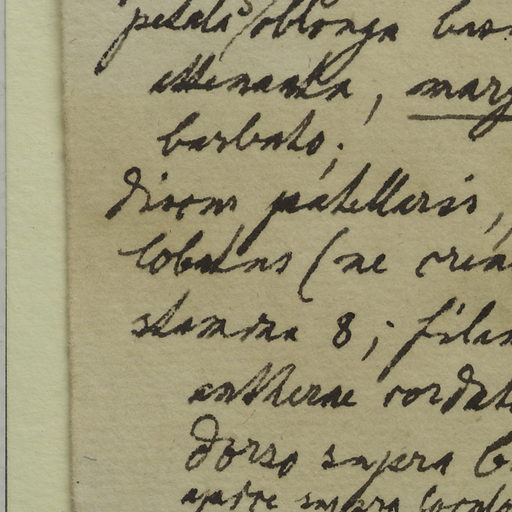 petala oblonga bas
attenuata, marg
barbato;
discus patellaris,
lobatus (ne cren
stamina 8; filam
antherae cordat
dorso supra b
apice supra